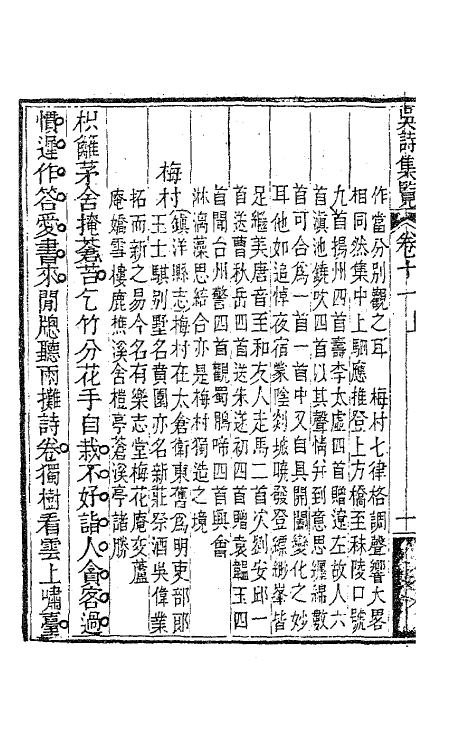 吳詩集覽 卷十一上 十一
作當分別觀之耳 梅村七律格調聲響大畧
相同然集中上駟應推登上方橋至秣陵口號
九首揚州四首壽李太虛四首贈遼左故人六
首滇池鐃吹四首以其聲情并到意思纏綿數
首可合爲一首一首中又自具開闔變化之妙
耳他如追悼夜宿蒙陰剡城曉發登縹緲峯皆
足繼美唐音至和友人走馬二首次劉安邱一
首送曹秋岳四首送朱遂初四首贈袁韞玉四
首聞台州警四首觀蜀鵑啼四首興會
淋漓藻思結合亦是梅村獨造之境
梅村 鎮洋縣志梅村在太倉衛東舊爲明吏部郎
王士騏別墅名賁園亦名新莊祭酒吳偉業
拓而新之易今名有樂志堂梅花庵交蘆
庵嬌雪樓鹿樵溪舍榿亭蒼溪亭諸勝
枳籬茅舍掩蒼苔乞竹分花手自栽不好詣人貪客過
慣遲作答愛書來閒牕聽雨攤詩卷獨樹看雲上嘯臺